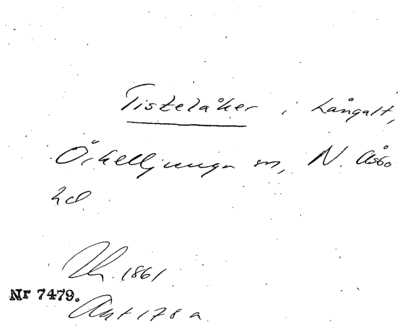 Tisteläker i Långalt,
Örkelljunga sn, N. Åsbo
hd
1861
Nr 7479.
Akt 178 a